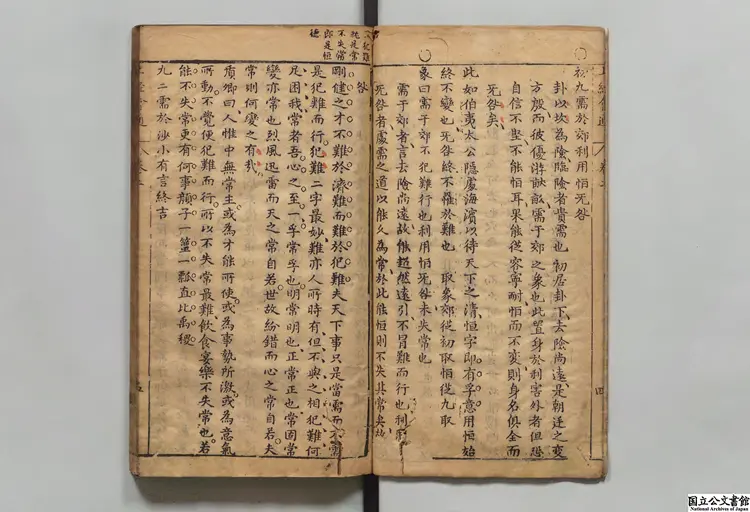 初九需於郊利用恒无咎
卦以坎為陰陰險者貴需也初居卦下去陰尚遠是朝廷之變
方殷而彼優游畎畝需于郊之象也此置身於利害外者但恐
自信不堅不能恒耳果能從容寧耐恒而不變則身名俱全而
无咎矣
此如伯夷太公隱處海濱以待天下之清恒字即有孚意用恒始
終不變也无咎終不罹於難也 取象郊從初取恒從九取
象曰需于郊不犯難行也利用恒无咎未失常也
需于郊者言去陰尚遠故能超然遠引不冒難而行也利用
无咎者處需之道以能久為常於此能恒則不失其常矣故
无咎
剛健之才不難於濟難而難於犯難夫天下事只是當需而不需
是犯難而行犯難二字最妙難亦人所時有但不與之相犯難何
足困我常者吾心之至一孚常孚也明常明也正常正也常固常
變亦常也烈風迅雷而天之常自若世故紛錯而心之常自若夫
常則何變之有哉
質卿曰人惟中無常主或為才能所使或為事勢所激或為意氣
所動不覺便犯難而行所以不失常最難飲食宴樂不失常也若
能不失常更有何事顏子一簞一瓢直比禹稷
九二需於沙小有言終吉
不失常
即是恒
德
四
五
国立公文書館
National Archives of Japan